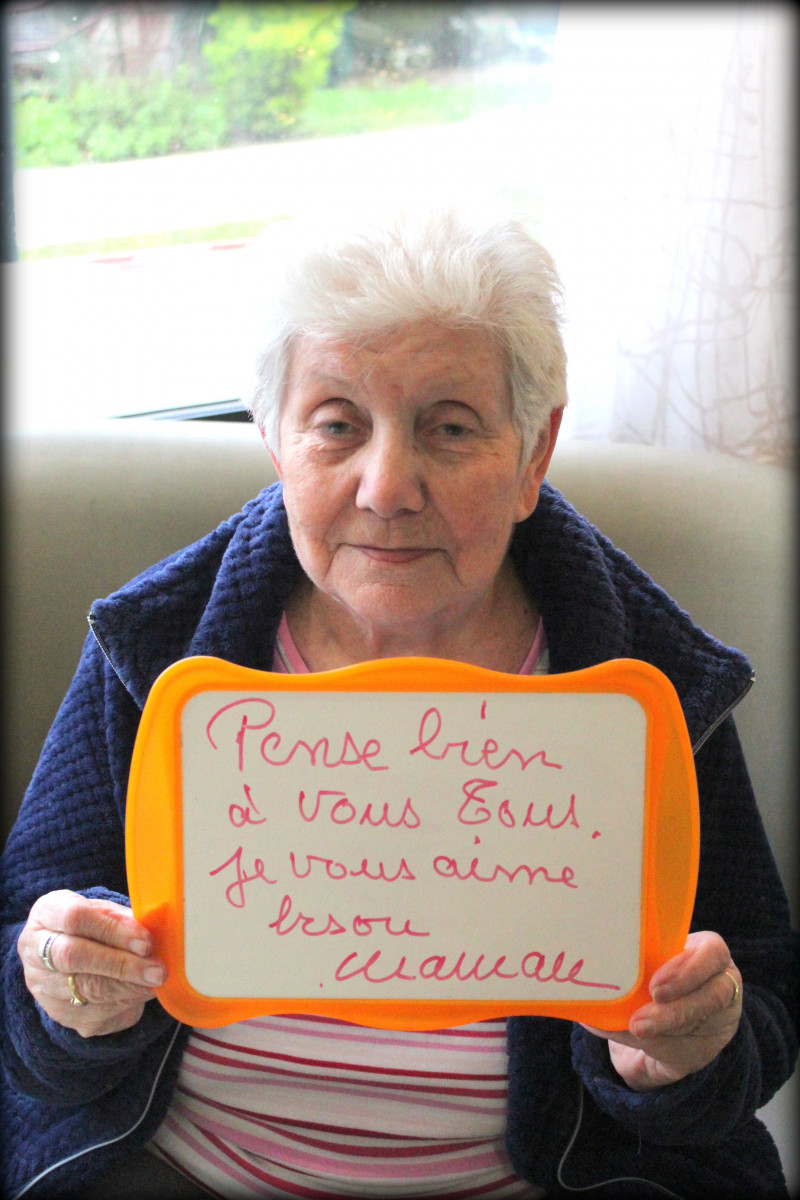 Pense bien
à vous Tous.
Je vous aime
bisou
maman